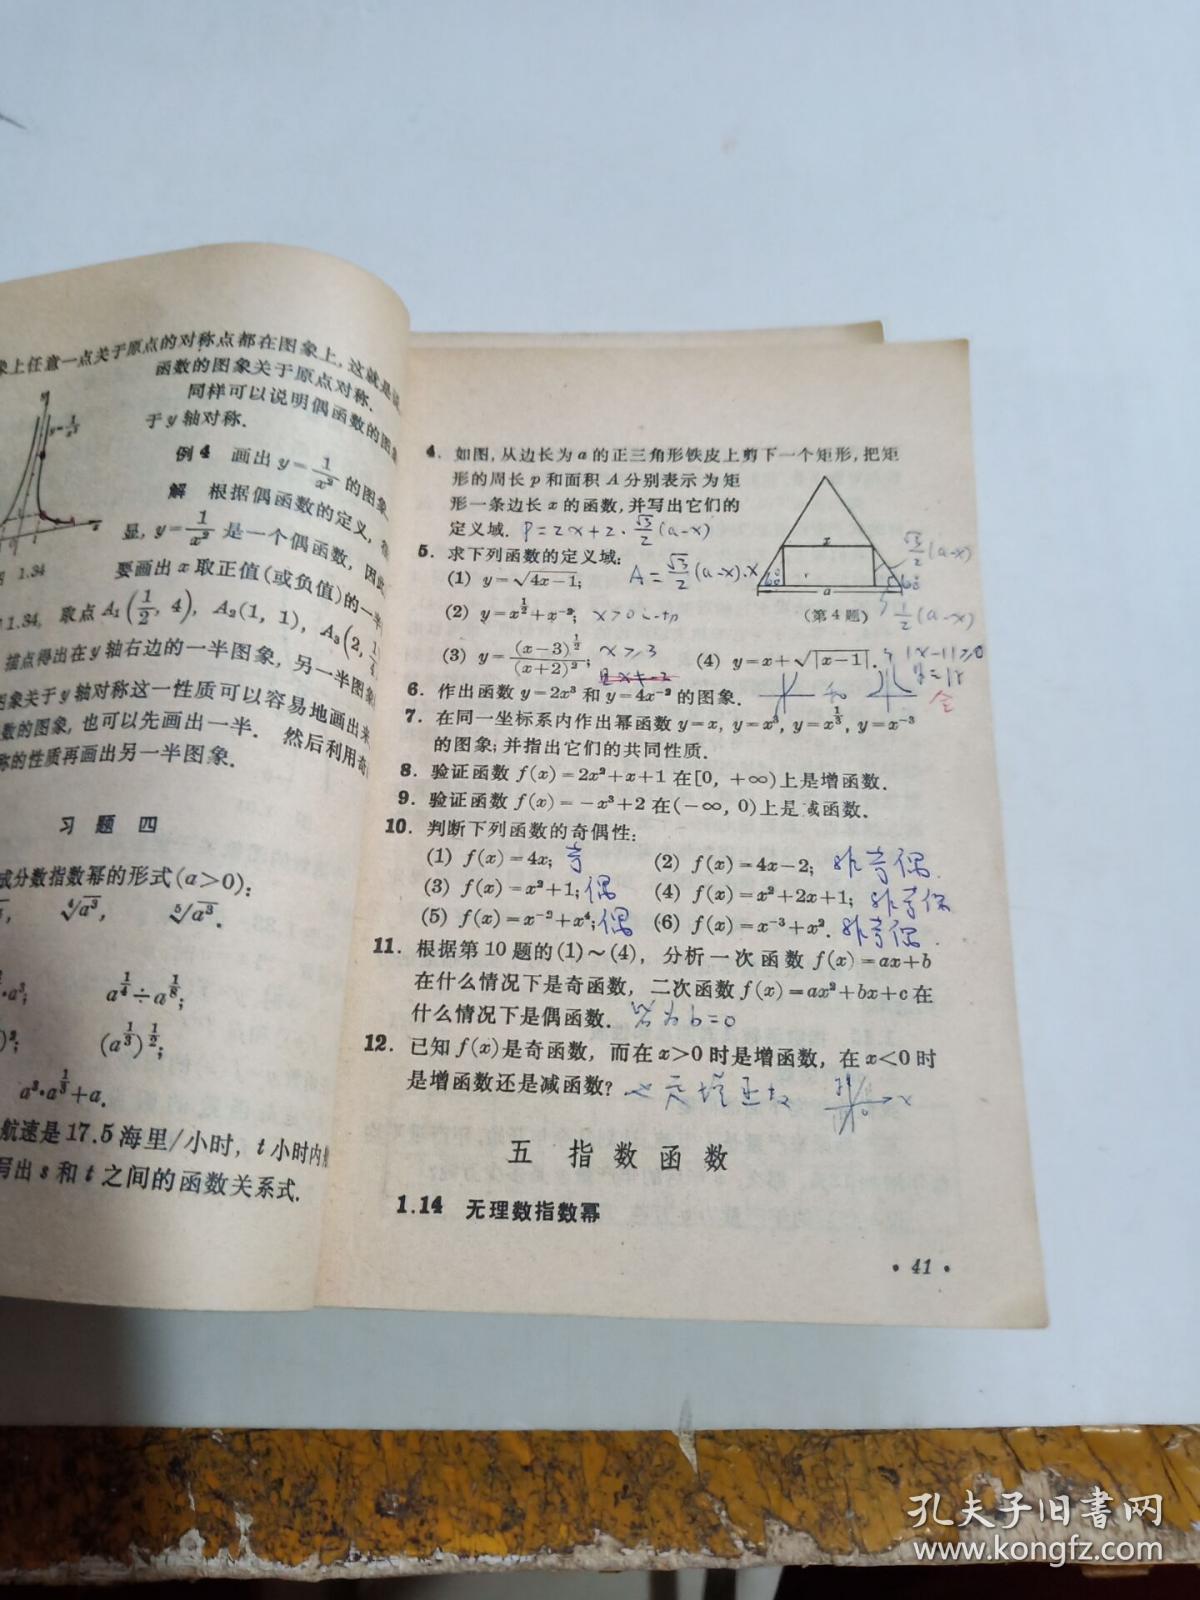 象上任意一点关于原点的对称点都在图象上,这就是说
函数的图象关于原点对称.
同样可以说明偶函数的图象
于y轴对称.
例4 画出 y=1/x² 的图象
解 根据偶函数的定义,
显, y=1/x² 是一个偶函数,因此
1.34
要画出x取正值(或负值)的一半
1.34, 取点A₁(1/2, 4), A₂(1, 1), A₃(2, 1/4)
描点得出在y轴右边的一半图象,另一半图象
图象关于y轴对称这一性质可以容易地画出来
数的图象,也可以先画出一半. 然后利用奇
称的性质再画出另一半图象.
习题四
成分数指数幂的形式(a>0):
⁴√a³, ⁵√a³.
·a³; a^(1/4)÷a^(1/8);
)²; (a^(1/3))^(1/2);
a³·a^(1/3)+a.
航速是17.5海里/小时, t小时内
写出s和t之间的函数关系式.
4. 如图,从边长为a的正三角形铁皮上剪下一个矩形,把矩
形的周长p和面积A分别表示为矩
形一条边长x的函数,并写出它们的
定义域. P=2x+2·√3/2(a-x)
x
√3/2(a-x)
60°
60°
a
(第4题)
1/2(a-x)
5. 求下列函数的定义域:
(1) y=√(4x-1); A=√3/2(a-x)·x
(2) y=x^(1/2)+x⁻²; x>0
(3) y=(x-3)^(1/2)/(x+2)²; x≥3
且x≠-2
(4) y=x+√|x-1|. |x-1|≥0
6. 作出函数y=2x³和y=4x⁻²的图象. 和
7. 在同一坐标系内作出幂函数y=x, y=x³, y=x^(1/3), y=x⁻³
的图象;并指出它们的共同性质.
8. 验证函数f(x)=2x²+x+1在[0, +∞)上是增函数.
9. 验证函数f(x)=-x³+2在(-∞, 0)上是减函数.
10. 判断下列函数的奇偶性:
(1) f(x)=4x; 奇 (2) f(x)=4x-2; 非奇偶.
(3) f(x)=x²+1; 偶 (4) f(x)=x²+2x+1; 非奇偶
(5) f(x)=x⁻²+x⁴; 偶 (6) f(x)=x⁻³+x². 非奇偶.
11. 根据第10题的(1)~(4), 分析一次函数f(x)=ax+b
在什么情况下是奇函数, 二次函数f(x)=ax²+bx+c在
什么情况下是偶函数. 皆为b=0
12. 已知f(x)是奇函数, 而在x>0时是增函数, 在x<0时
是增函数还是减函数?
五 指数函数
1.14 无理数指数幂
• 41 •
孔夫子旧书网
www.kongfz.com